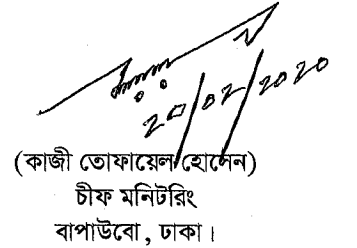 20/02/2020
(কাজী তোফায়েল হোসেন)
চীফ মনিটরিং
বাপাউবো, ঢাকা।